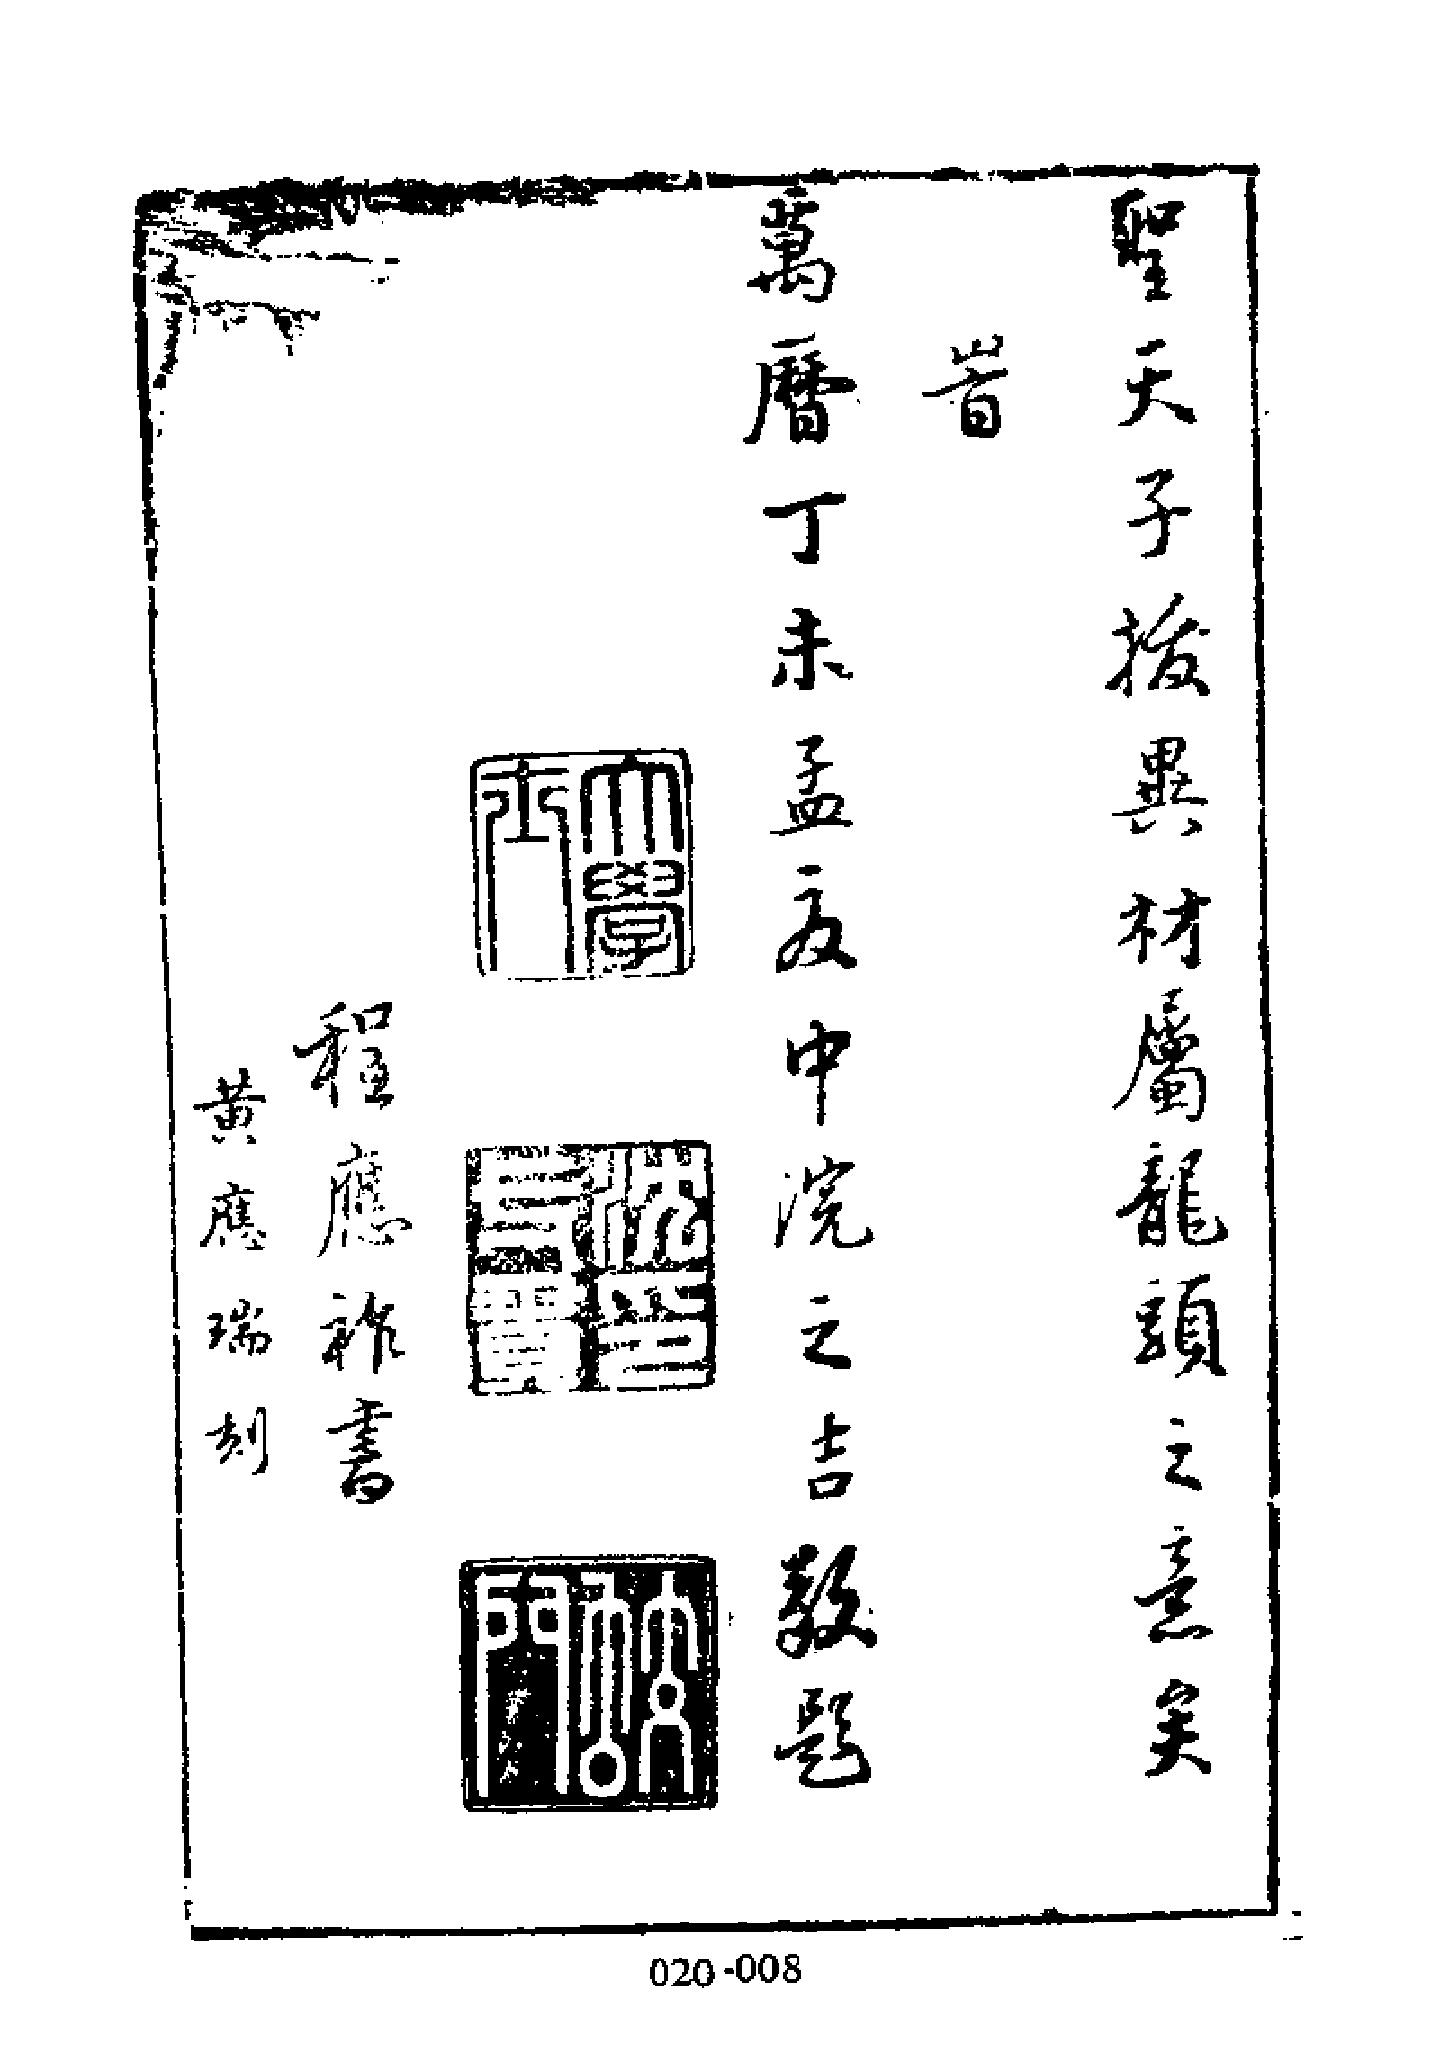 聖天子拔異材屬龍頭之意矣
旹
萬曆丁未孟夏中浣之吉敬題
大學士
沈印一貫
程應祚書
黃應瑞刻
020-008